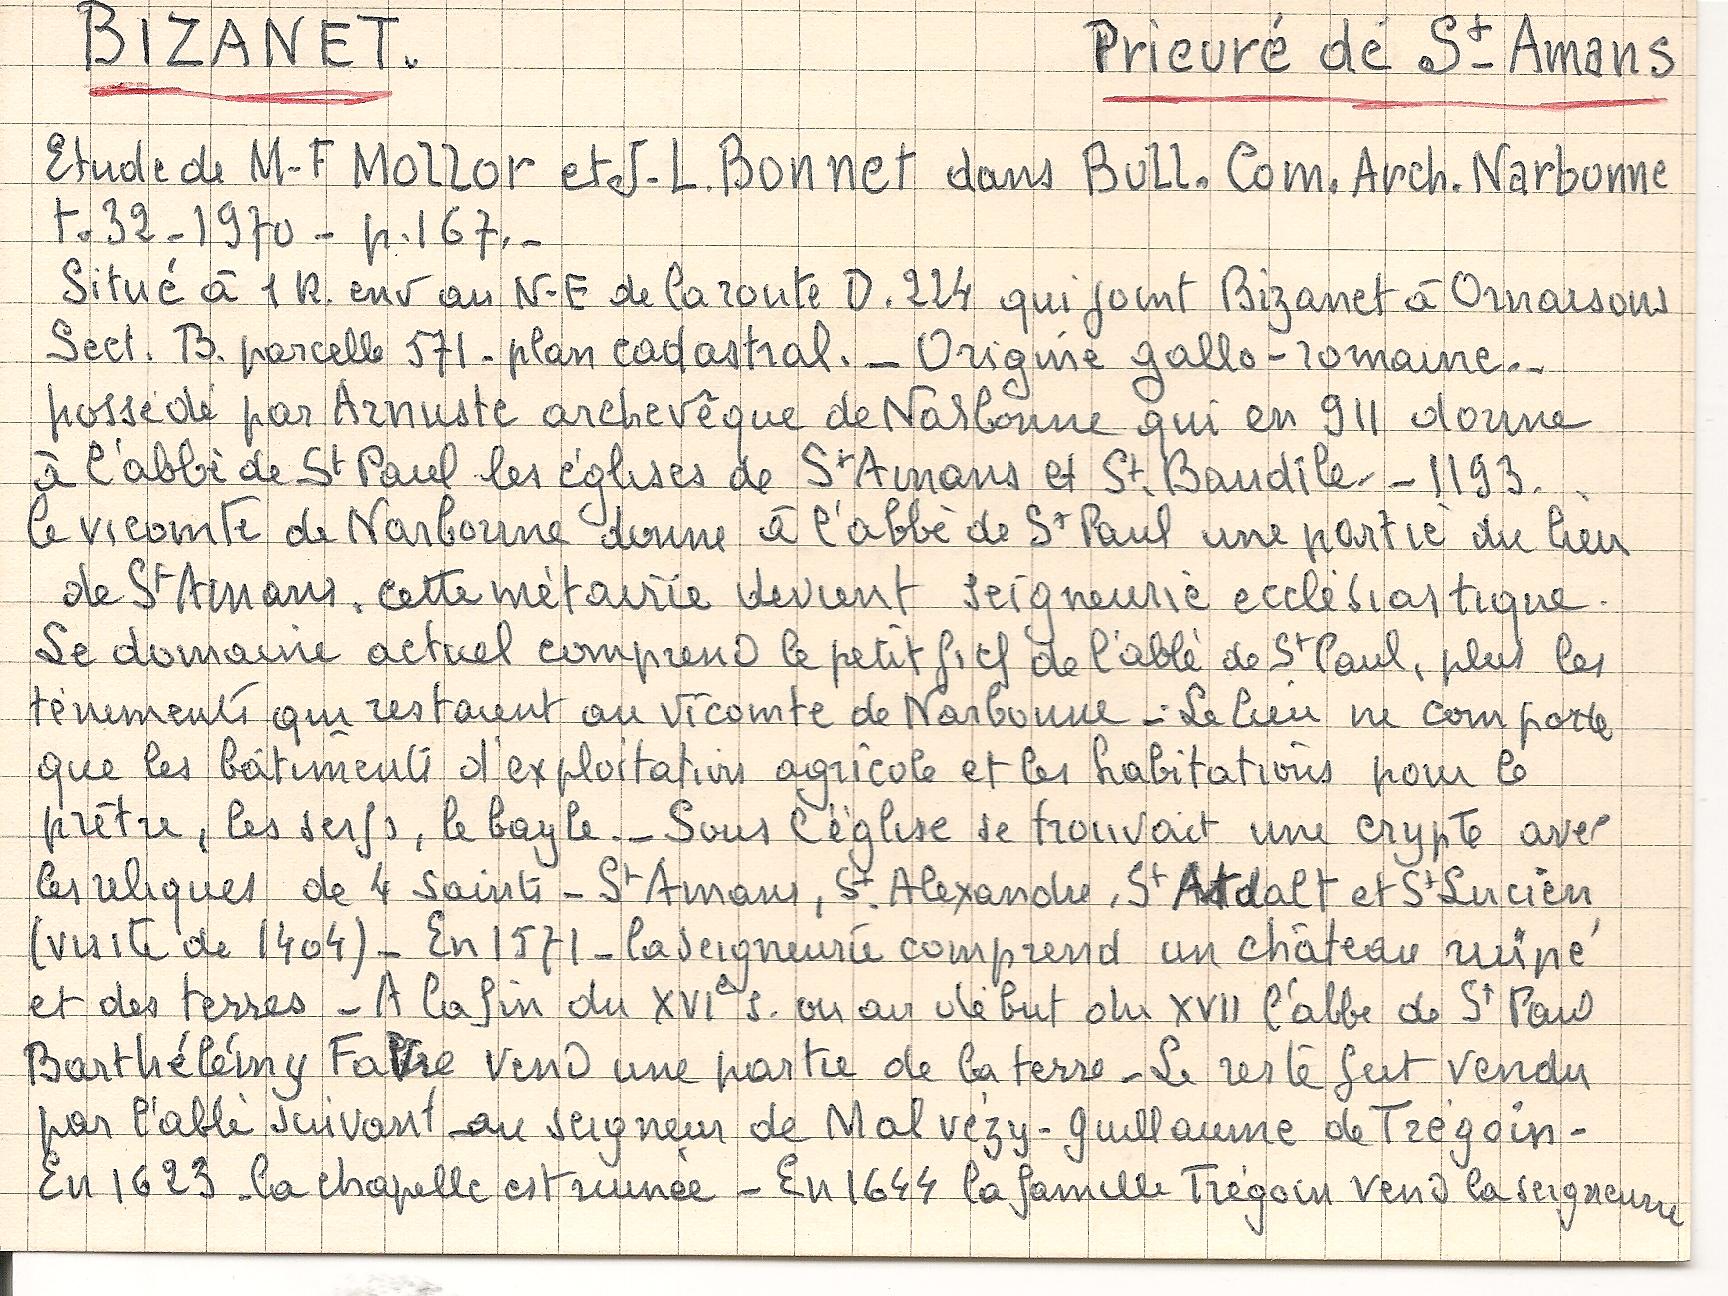 BIZANET. Prieuré de St Amans
Etude de M-F Mollor et J-L. Bonnet dans Bull. Com. Arch. Narbonne
t. 32 - 1970 - p. 167. -
Situé à 1 k. env au N-E de la route D. 224 qui joint Bizanet à Ornaisons
Sect. B. parcelle 571 - plan cadastral. - Origine gallo-romaine. -
possédé par Arnuste archevêque de Narbonne qui en 911 donne
à l'abbé de St Paul les églises de St Amans et St. Baudile. - 1193.
le vicomte de Narbonne donne à l'abbé de St Paul une partie du lieu
de St Amans. cette métairie devient seigneurie ecclésiastique.
Le domaine actuel comprend le petit fief de l'abbé de St Paul, plus les
tènements qui restaient au vicomte de Narbonne - Le lieu ne comporte
que les bâtiments d'exploitation agricole et les habitations pour le
prêtre, les serfs, le bayle. - Sous l'église se trouvait une crypte avec
les reliques de 4 saints - St Amans, St. Alexandre, St dalt et St Lucien
(visite de 1404) - En 1571 - la seigneurie comprend un château ruiné
et des terres - A la fin du XVIe s. ou au début du XVII l'abbé de St Paul
Barthélémy Fabre vend une partie de la terre - Le reste fut vendu
par l'abbé suivant au seigneur de Malvézy - Guillaume de Trégoin -
En 1623 - la chapelle est ruinée - En 1644 la famille Trégoin vend la seigneurie